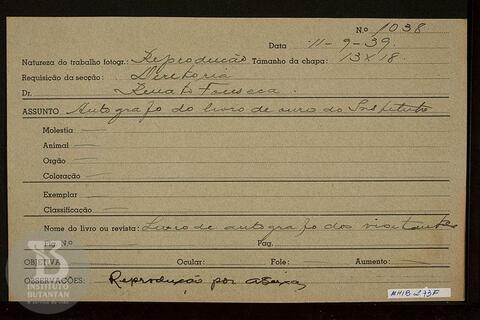 N.o 1038
Data 11-9-39.
Natureza do trabalho fotogr.: Reprodução Tamanho da chapa: 13 x 18.
Requisição da secção: Diretoria
Dr. Renato Fonseca.
ASSUNTO Autografo do livro de ouro do Instituto
Molestia
Animal
Orgão
Coloração
Exemplar
Classificação
Nome do livro ou revista: Livro de autografo dos visitantes
Fig. N.o Pag.
OBJETIVA Ocular: Fole: Aumento:
OBSERVAÇÕES: Reprodução por
INSTITUTO
BUTANTAN
A SERVIÇO DA VIDA
MHIB 273F